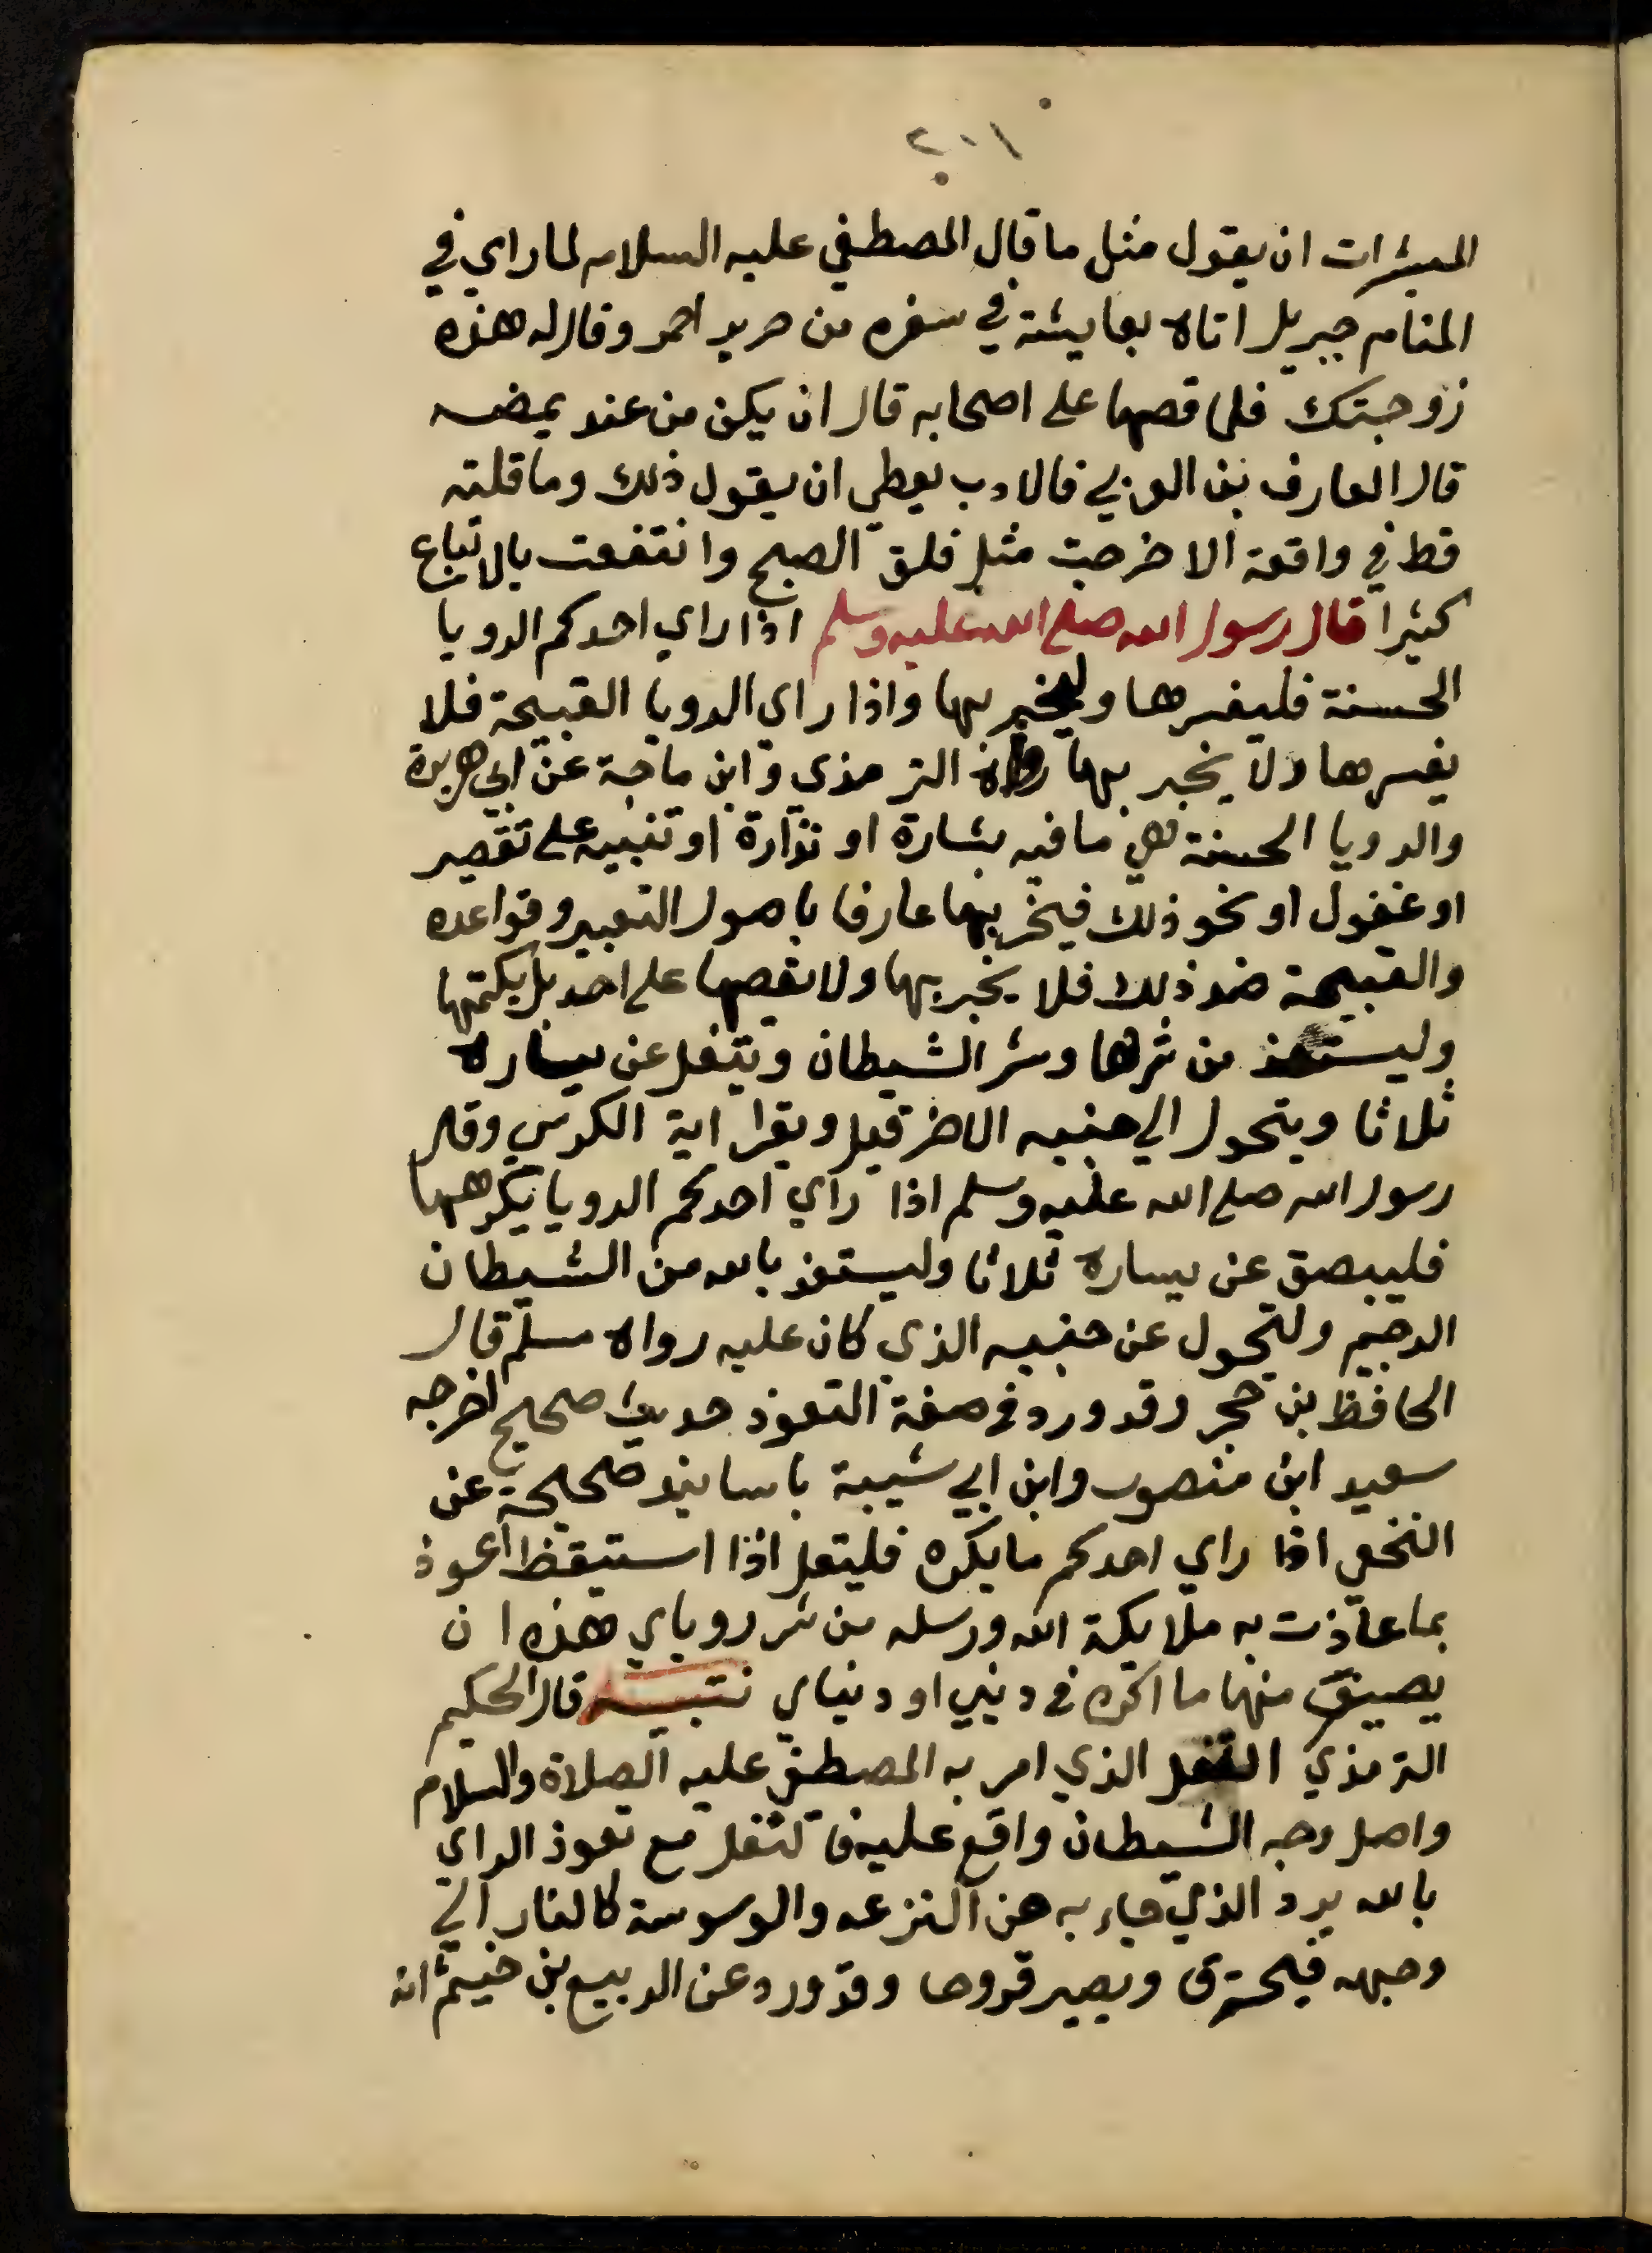 ٢٠١
المبشرات ان يقول مثل ما قال المصطفي عليه السلام لما راي في
المنام جبريل اتاه بعايشة في سفره من حرير احمر وقال له هذه
زوجتك فلما قصها على اصحابه قال ان يكن من عند يمضه
قال العارف بن العربي فالادب يعطي ان يقول ذلك وما قلته
قط في واقعة الا خرجت مثل فلق الصبح وانتفعت بالاتباع
كثيرا قال رسول الله صلى الله عليه وسلم اذا راي احدكم الرويا
الحسنة فليفسرها وليخبر بها واذا راي الرويا القبيحة فلا
يفسرها ولا يخبر بها رواه الترمذي وابن ماجة عن ابي هريرة
والرويا الحسنة هي ما فيه بشارة او نذارة او تنبيه على تقصير
او غفول او نحو ذلك فيخبر بها عارفا باصول التعبير وقواعده
والقبيحة ضد ذلك فلا يخبر بها ولا يقصها على احد بل يكتمها
وليستعذ من شرها وشر الشيطان ويتفل عن يساره
ثلاثا ويتحول الي جنبه الاخر قيل ويقرا اية الكرسي وقال
رسول الله صلى الله عليه وسلم اذا راي احدكم الرويا يكرهها
فليبصق عن يساره ثلاثا وليستعذ بالله من الشيطان
الرجيم وليتحول عن جنبه الذي كان عليه رواه مسلم قال
الحافظ بن حجر وقد ورد في صفة التعوذ حديث صحيح اخرجه
سعيد ابن منصور وابن ابي شيبة باسانيد صحيحة عن
النخعي اذا راي احدكم ما يكره فليقل اذا استيقظ اعوذ
بما عاذت به ملايكة الله ورسله من شر روياي هذه ان
يصيبني منها ما اكره في ديني او دنياي تنبيه قال الحكيم
الترمذي التفل الذي امر به المصطفي عليه الصلاة والسلام
واصل وجه الشيطان واقع عليه فالتفل مع تعوذ الراي
بالله يرد الذي جاء به من النزعه والوسوسة كالنار الي
وجهه فيحترق ويصير قروحا وقد ورد عن الربيع بن خيثم انه